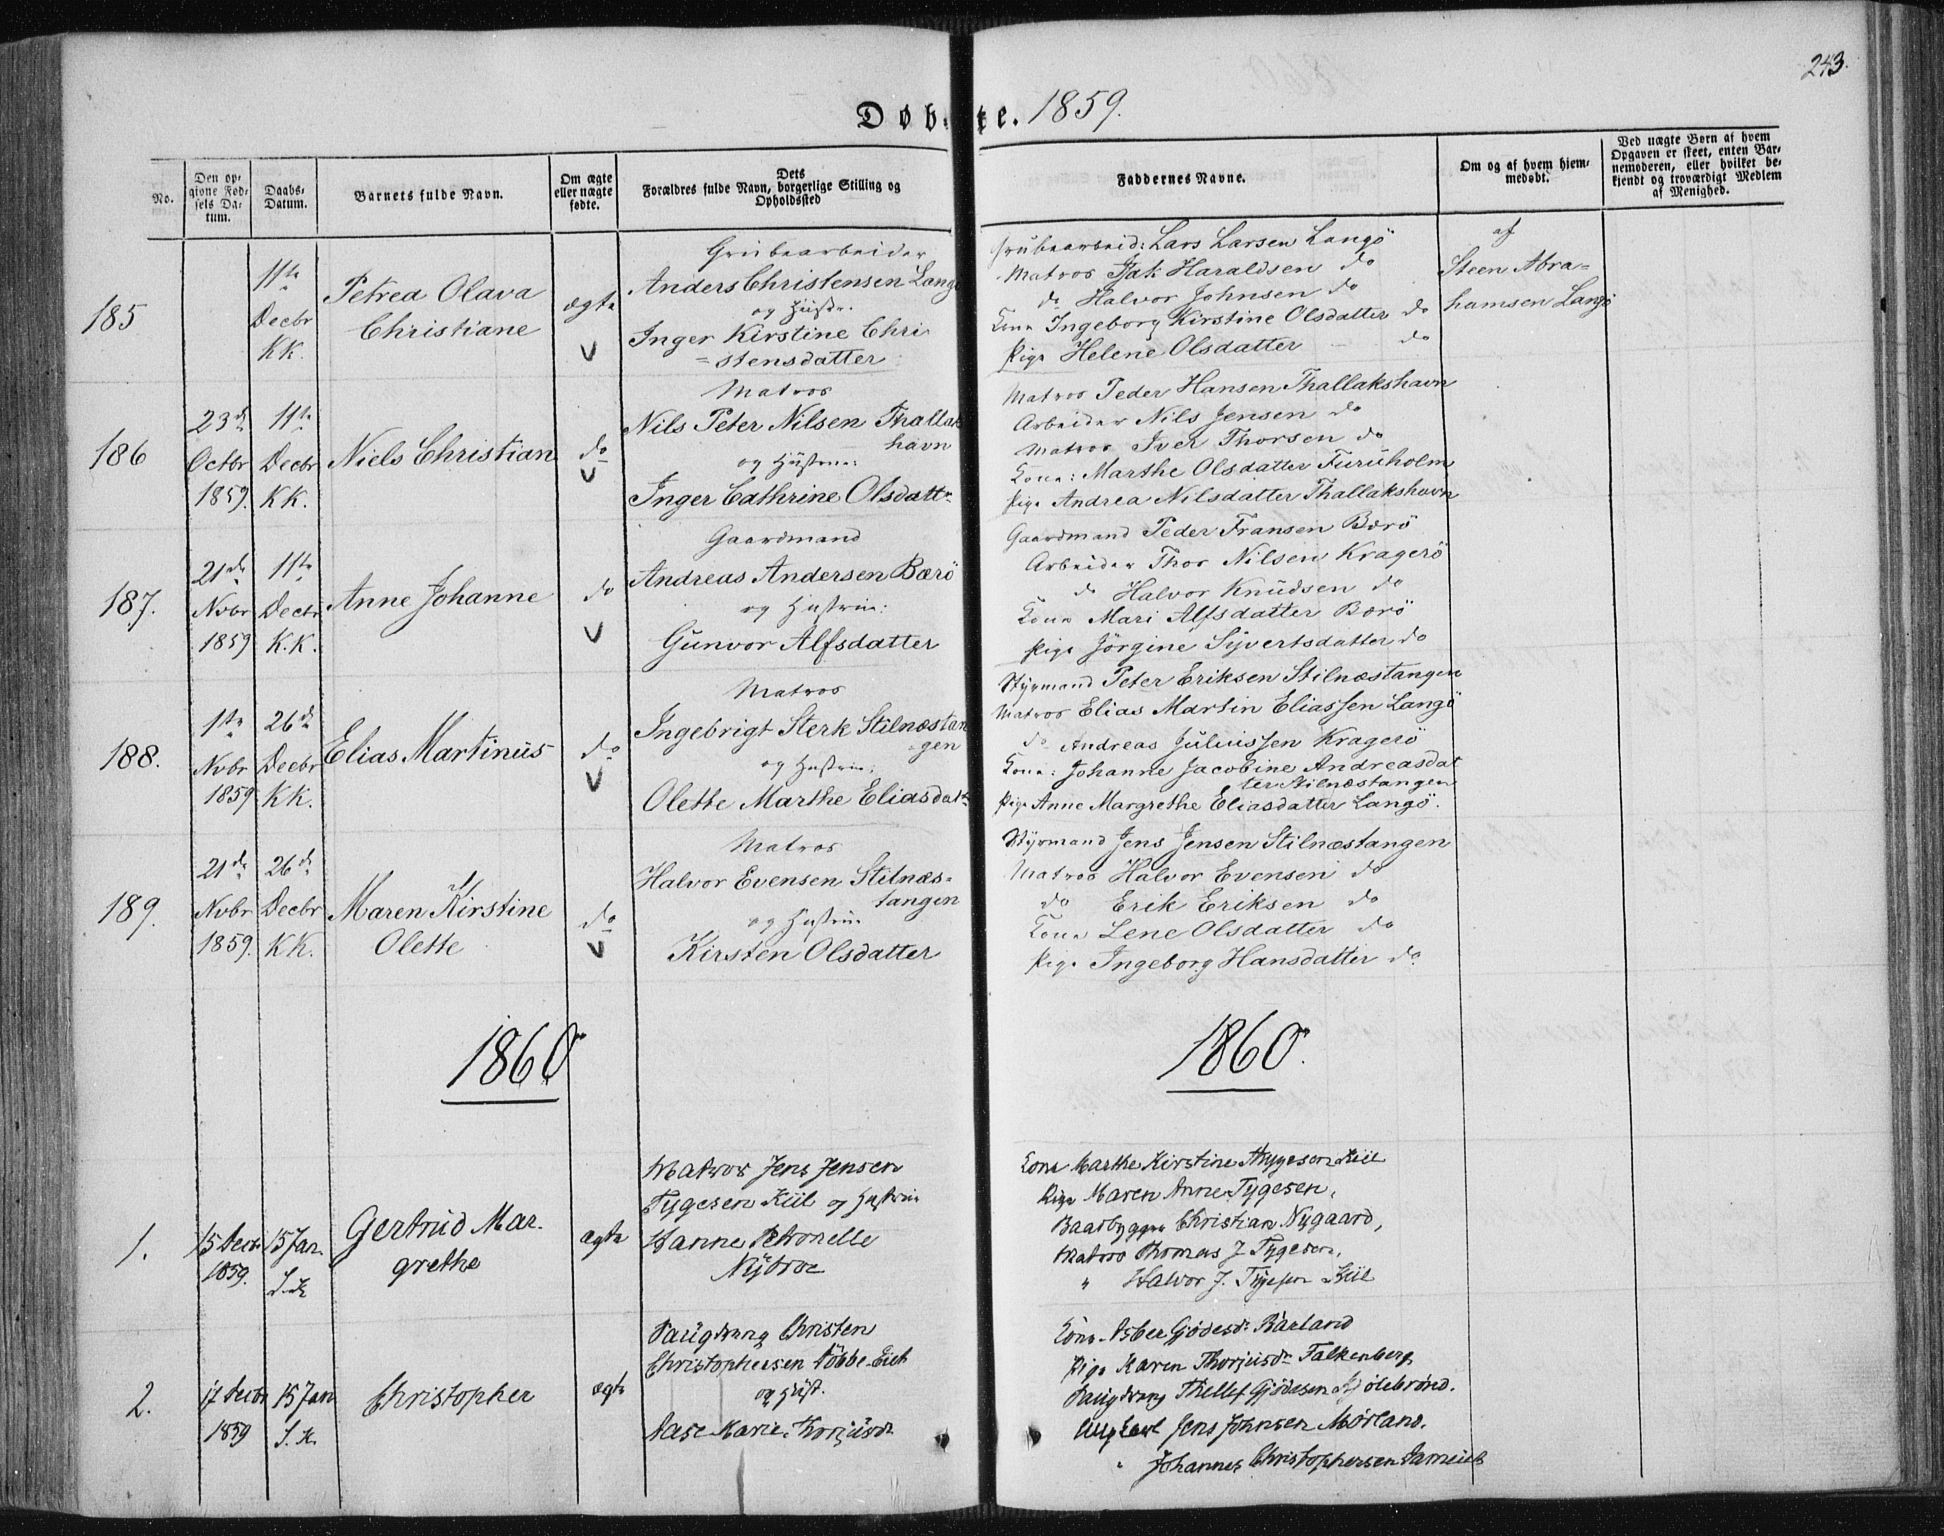 243.
Døbte. 1859.
No.
Den opgivne Fødsels Datum.
Daabs-Datum.
Barnets fulde Navn.
Om ægte eller uægte fødte.
Dets Forældres fulde Navn, borgerlige Stilling og Opholdssted
Faddernes Navne.
Om og af hvem hjemmedøbt.
Ved uægte Børn af hvem Opgaven er skeet, enten Barnemoderen, eller hvilket bekjendt og troværdigt Medlem af Menighed.
185
11te
Decbr
KK.
Petrea Olava
Christiane
ægte
V
Grubearbeider
Anders Christensen Langö
og Hustr.
Inger Kirstine Chri
=stensdatter
Grubearbeid: Lars Larsen Langö
Matros Isak Haraldsen do
do Halvor Johnsen do
Kone Ingeborg Kirstine Olsdatter do
Pige Helene Olsdatter do
af
Steen Abra=
hamsen Langö
186
23de
Octbr
1859.
11te
Decbr
KK.
Niels Christian
do
V
Matros
Nils Peter Nilsen Thallaks
havn
og Hustrue:
Inger Cathrine Olsdattr
Matros Peder Hansen Thallakshavn
Arbeider Nils Jensen do
Matros Iver Thorsen do
Kone: Marthe Olsdatter Furuholm
Pige Andrea Nilsdatter Thallakshavn
187.
21de
Nvbr
1859
11te
Decbr
K.K.
Anne Johanne
do
V
Gaardmand
Andreas Andersen Bærö
og Hustrue:
Gunvor Alfsdatter
Gaardmand Peder Fransen Bærö
Arbeider Thor Nilsen Kragerö
do Halvor Knudsen do
Kone Mari Alfsdatter Bærö
Pige Jörgine Syvertsdatter do
188.
1ste
Nvbr
1859
26de
Decbr
KK.
Elias Martinus
do
V
Matros
Ingebrigt Sterk Stilnæstan
=gen
og Hustrue:
Olette Marthe Eliasdatt
Styrmand Peter Eriksen Stilnæstangen
Matros Elias Martin Eliassen Langö
do Andreas Juliussen Kragerö
Kone: Johanne Jacobine Andreasdat
ter Stilnæstangen
Pige Anne Margrethe Eliasdatter Langö.
189.
21de
Nvbr
1859.
26de
Decbr
KK.
Maren Kirstine
Olette
do
V
Matros
Halvor Evensen Stilnæs=
tangen
og Hustrue
Kirsten Olsdatter
Styrmand Jens Jensen Stilnæstangen
Matros Halvor Evensen do
do Erik Eriksen do
Kone Lene Olsdatter do
Pige Ingeborg Hansdatter do
1860
1860.
1.
15 Decbr
1859.
15 Jan.
S.K
Gertrud Mar.
grethe
ægte
Matros Jens Jensen
Tygesen Kiil og Hustrue
Hanne Petronelle
Nybroe
Kone Marthe Kirstine Thygesen Kiil
Pige Maren Anne Tygesen,
Baadbygger Christian Nygaard,
Matros Thomas J. Tygesen,
" Halvor J. Tygesen Kiil
2.
17 Decbr
1859
15 Jan
S.K.
Christopher
ægte
Christen
Christophersen
og Hust.
Aase Marie Thorjusdr
Kone Asber Gjödesdr Barland
Pige Karen Thorjusdr Falkenberg
Thellef Gjödesen
Ungkarl Jens Johnsen Mørland.
" Johannes Christophersen